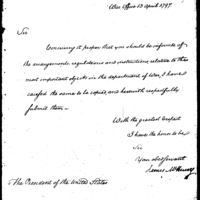 War Office 13 April 1797.
Sir
Conceiving it proper that you should be informed of
the arrangements regulations and instructions relative to the
most important objects in the department of War, I have
caused the same to be copied and herewith respectfully
submit them—
With the greatest respect
I have the honor to be
Sir
Your obed servant
James McHenry
The President of the United States